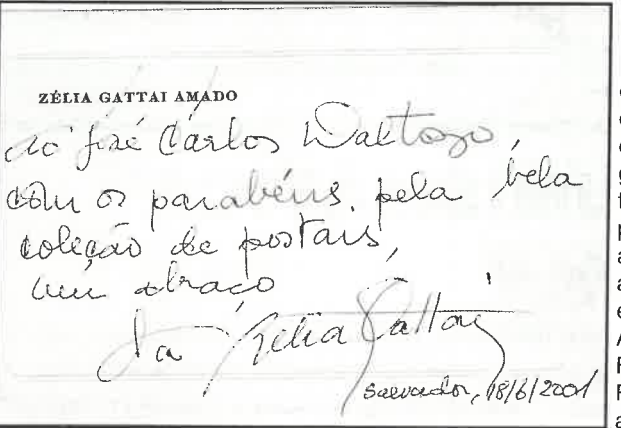 ZÉLIA GATTAI AMADO
Ao José Carlos Daltozo,
com os parabéns, pela bela
coleção de postais,
um abraço
da Zélia Gattai
Salvador, 18/6/2001